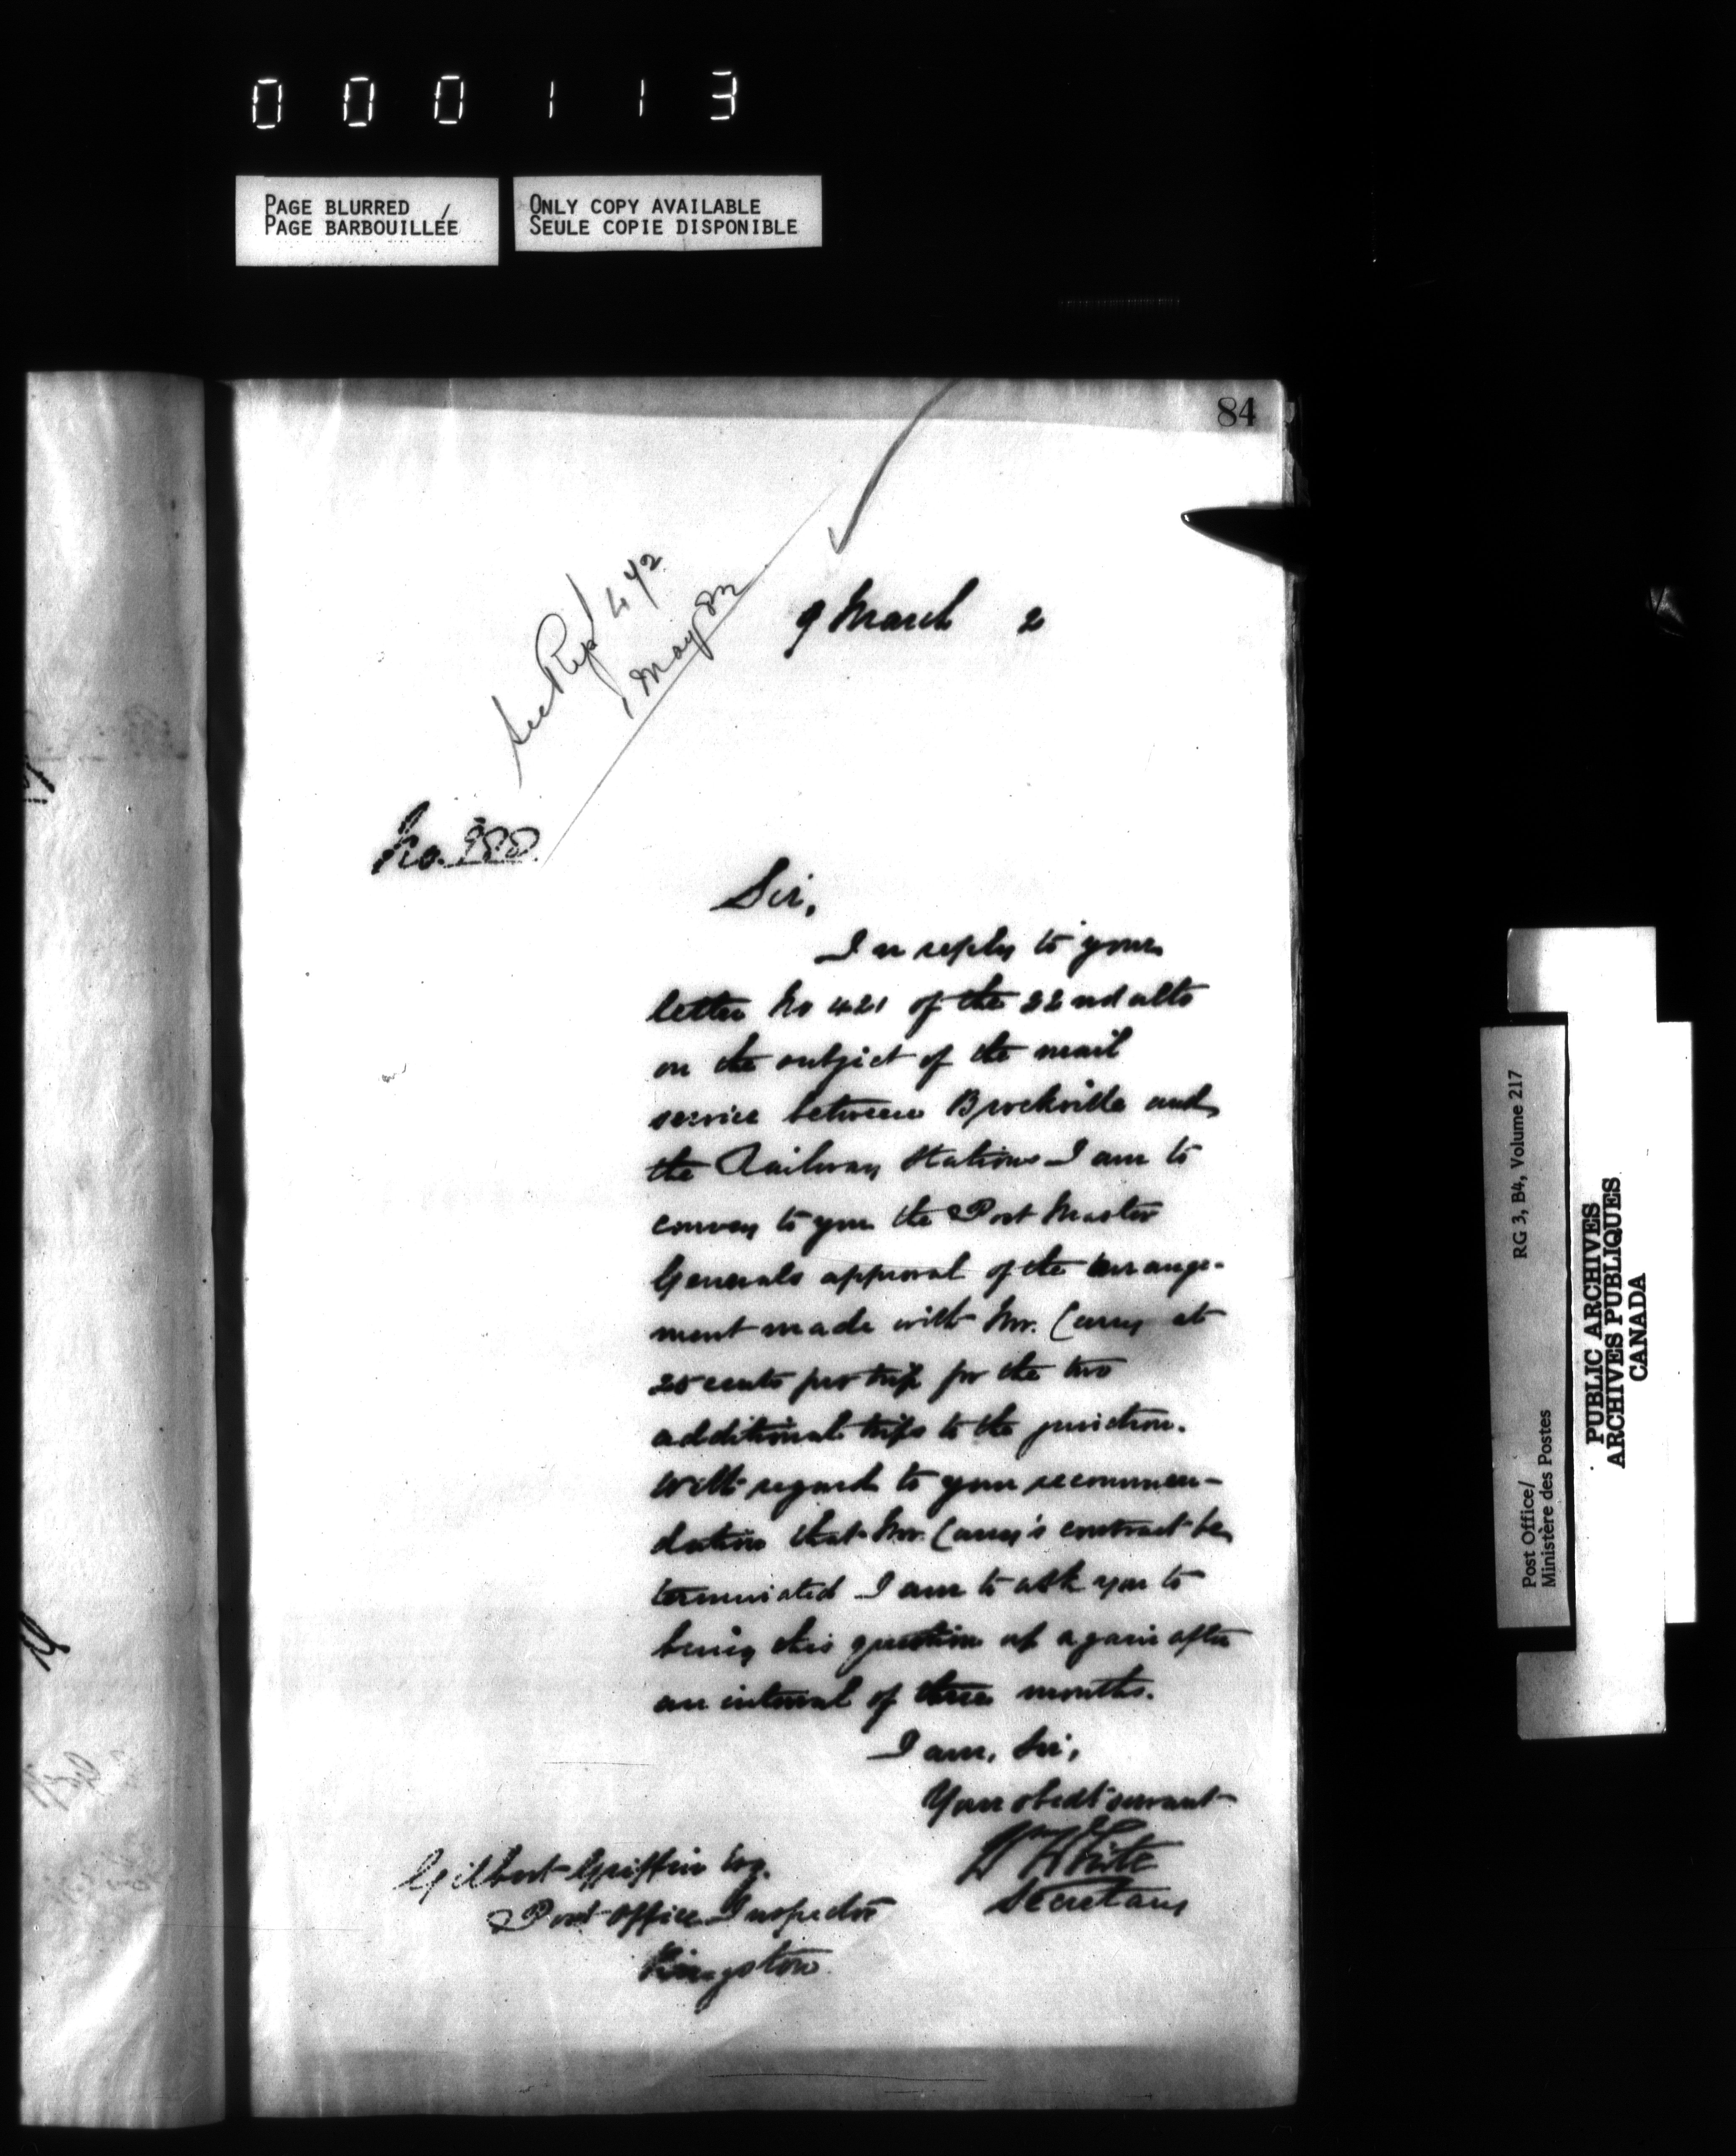 000113
PAGE BLURRED /
PAGE BARBOUILLÉE
ONLY COPY AVAILABLE
SEULE COPIE DISPONIBLE
84
9 March 2
See Rep
May
No.
Sir,
In reply to your
letter No 421 of the 22nd ulto
on the subject of the mail
service between Brockville and
the Railway Stations I am to
convey to you the Post Master
Generals approval of the arrange-
ment made with Mr. Carey at
25 cents per trip for the two
additional trips to the junction.
With regard to your recommen-
dation that Mr. Carey's contract be
terminated I am to ask you to
bring this question up again after
an interval of three months.
I am, Sir,
Your obedt servant
Wm White
Secretary
Gilbert Griffin Esq.
Post Office Inspector
Kingston
RG 3, B4, Volume 217
Post Office/
Ministère des Postes
PUBLIC ARCHIVES
ARCHIVES PUBLIQUES
CANADA